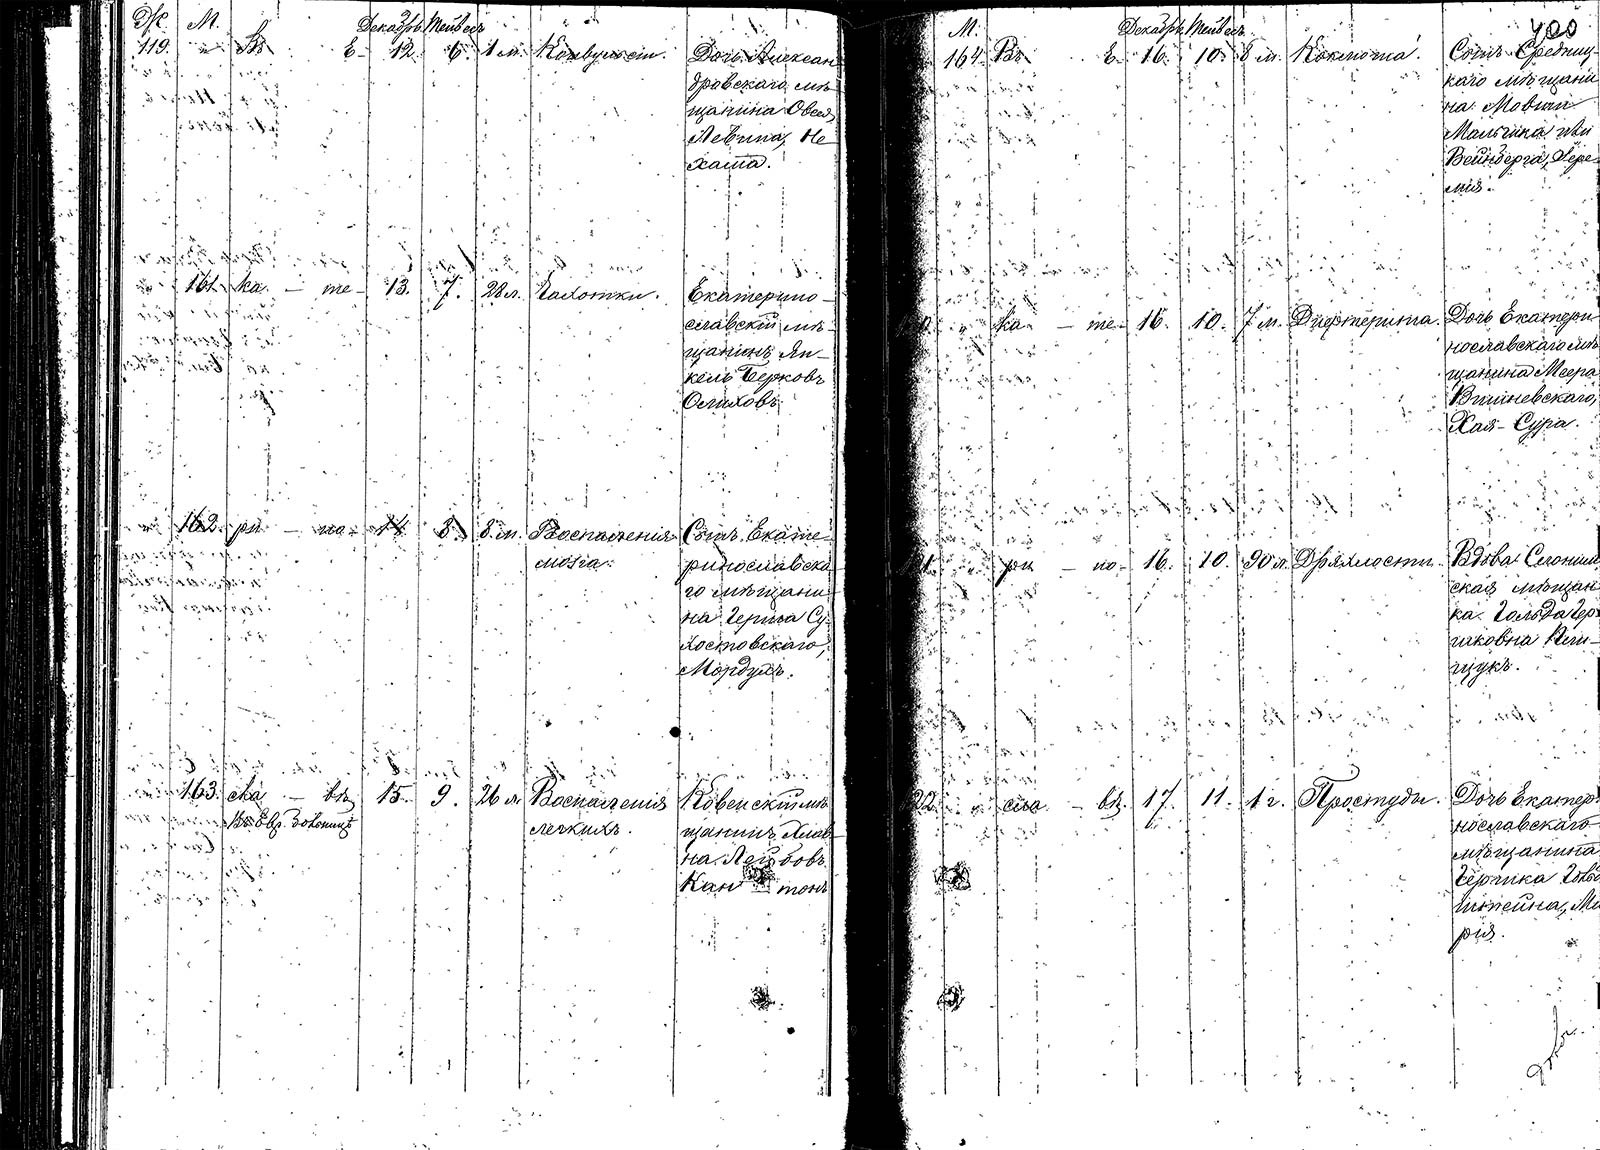 Ж. М. Декабрь Тейвесъ
119. " Въ Е 12. 6. 1 м. Конвульсіи. Дочь Алексан
дровскаго мѣ
щанина Овсея
Левина, Не
хама.
161. ка — те 13. 7. 28 л. Чахотки. Екатерино
славскій мѣ
щанинъ Ян
кель Берковъ
162. ри — но 14 8. 8 м. Воспаленія Сынъ Екате
мозга. ринославска
го мѣщани
на Герша Су
хостовскаго,
Мордухъ.
163. сла — вѣ 15. 9. 26 л. Воспаленія Ковенскій мѣ
Въ Евр. больницѣ легкихъ. щанинъ
на Лейбовъ
Кан тонъ
400
М. Декабрь Тейвесъ
164. Въ Е 16. 10. 8 м. Коклюша. Сынъ
каго мѣщани
на Мовши
Мальчика или
Вейнберга, Іере
мія.
" ка — те 16. 10. 7 м. Дифтерита. Дочь Екатери
нославскаго мѣ
щанина Меера
Вишневскаго,
Хая-Сура.
ри — но 16. 10. 90 л. Дряхлости. Вдова Слоним
ская мѣщан
ка Гольда Гер
шковна
" сла — вѣ 17. 11. 1 г. Простуды. Дочь Екатер
нославскаго
мѣщанина
Гершка Голь
штейна, Ма
рія.